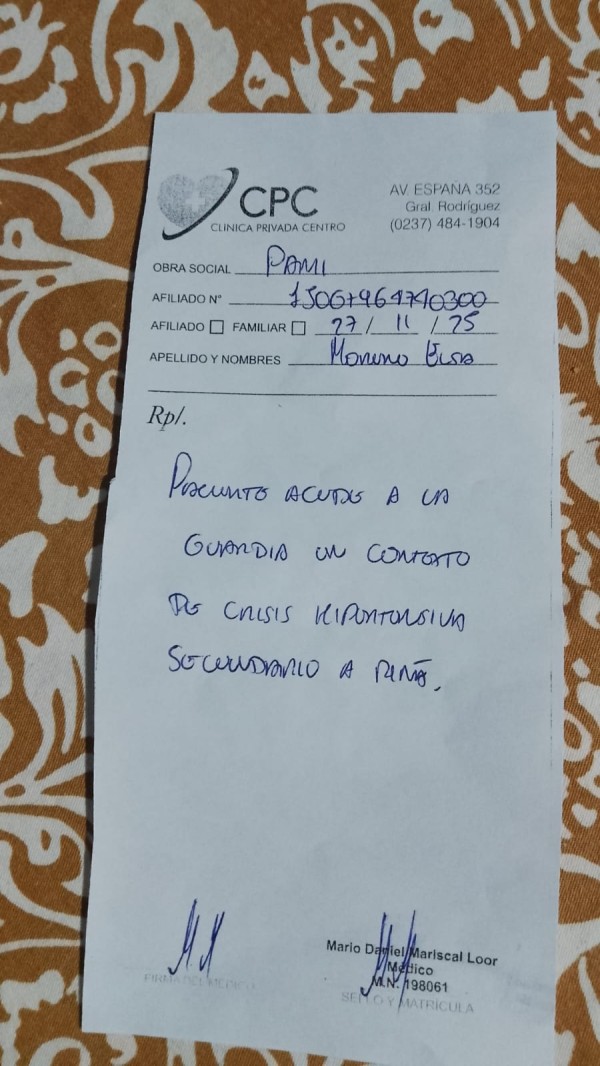 CPC
CLINICA PRIVADA CENTRO
AV. ESPAÑA 352
Gral. Rodríguez
(0237) 484-1904
OBRA SOCIAL PAMI
AFILIADO N° 15067964740300
AFILIADO FAMILIAR 27 / 11 / 25
APELLIDO Y NOMBRES Moreno Elsa
Rp/.
PACIENTE ACUDE A LA
GUARDIA EN CONTEXTO
DE CRISIS HIPERTENSIVA
SECUNDARIO A RIÑA.
Mario Daniel Mariscal Loor
Médico
M.N. 198061
FIRMA DEL MEDICO
SELLO Y MATRÍCULA